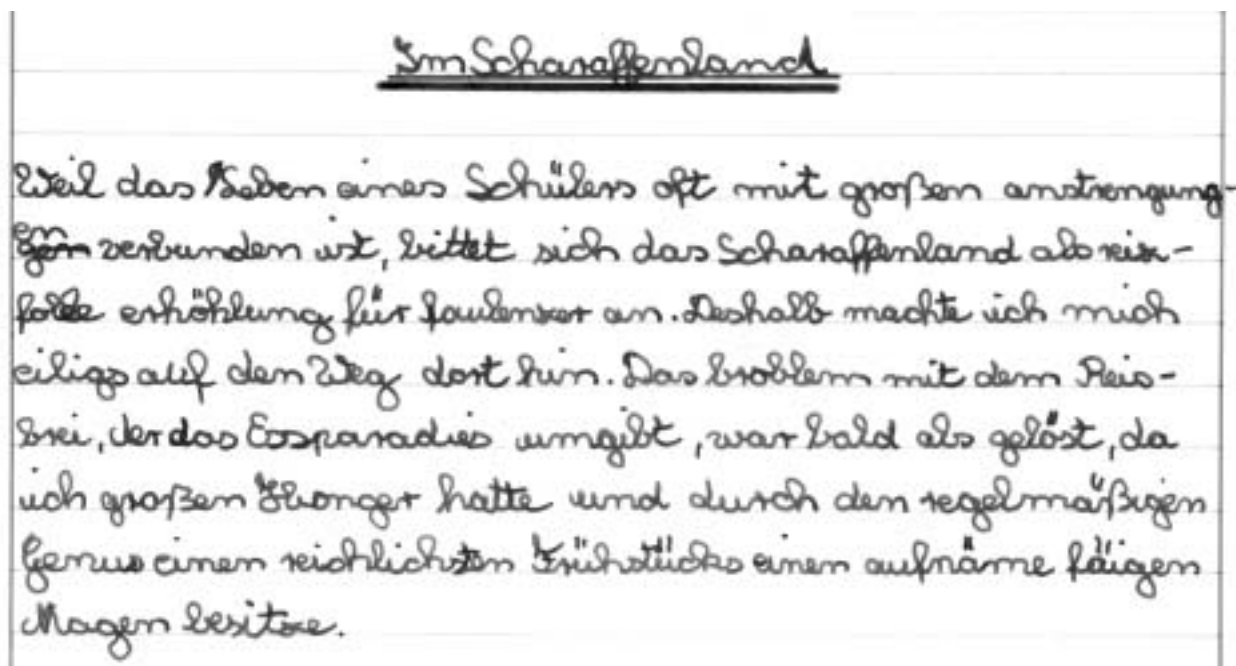 Im Scharaffenland
Weil das Leben eines Schülers oft mit großen anstrengung-
en verbunden ist, bittet sich das Scharaffenland als reix-
folle erhöhlung für faulenzer an. Deshalb machte ich mich
eiligs auf den Weg dort hin. Das broblem mit dem Reis-
brei, der das Essparadies umgibt, war bald als gelöst, da
ich großen Honger hatte und durch den regelmäßigen
Genus einen reichlichsten Früihstücks einen aufnäme fäigen
Magen besitze.